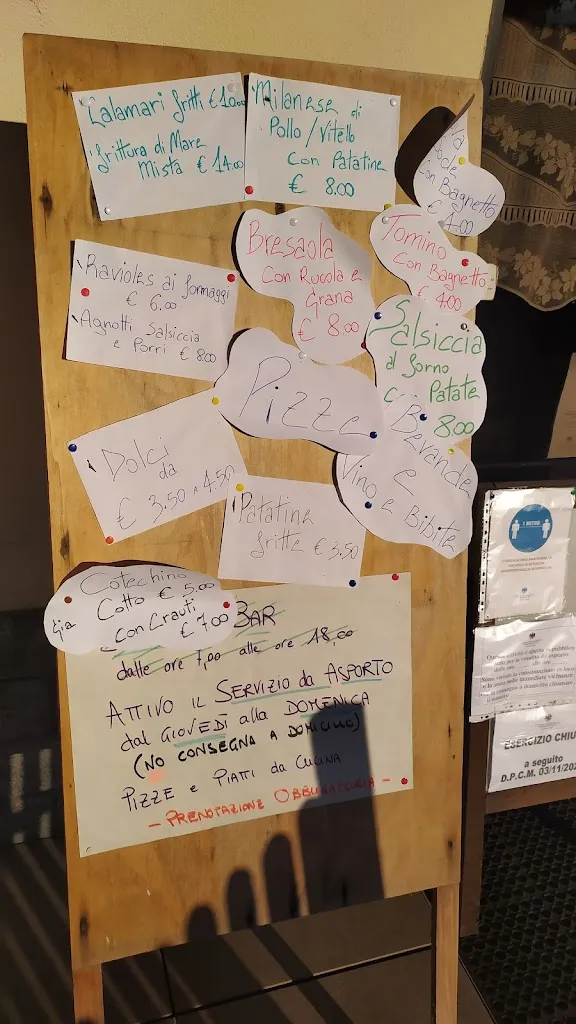 Calamari fritti € 10.00
frittura di Mare
Mista € 14.00
Milanese di
Pollo/Vitello
con Patatine
€ 8.00
con Bagnetto
€ 4.00
Bresaola
con Rucola e
Grana
€ 8.00
Tomino
con Bagnetto
€ 4.00
Ravioles ai formaggi
€ 6.00
Agnotti Salsiccia
e Porri € 8.00
Salsiccia
al forno
Patate
8.00
Pizze
Dolci
da
€ 3.50 a 4.50
Bevande
e
Vino e Bibite
Patatine
fritte € 3.50
Cotechino
Già Cotto € 5.00
con Crauti
€ 7.00
BAR
dalle ore 7,00 alle ore 18,00
ATTIVO IL SERVIZIO da ASPORTO
dal GIOVEDÌ alla DOMENICA
(NO CONSEGNA A DOMICILIO)
PIZZE e PIATTI da CUCINA
- PRENOTAZIONE OBBLIGATORIA -
1 METRO
ESERCIZIO CHIU
a seguito
D.P.C.M. 03/11/202